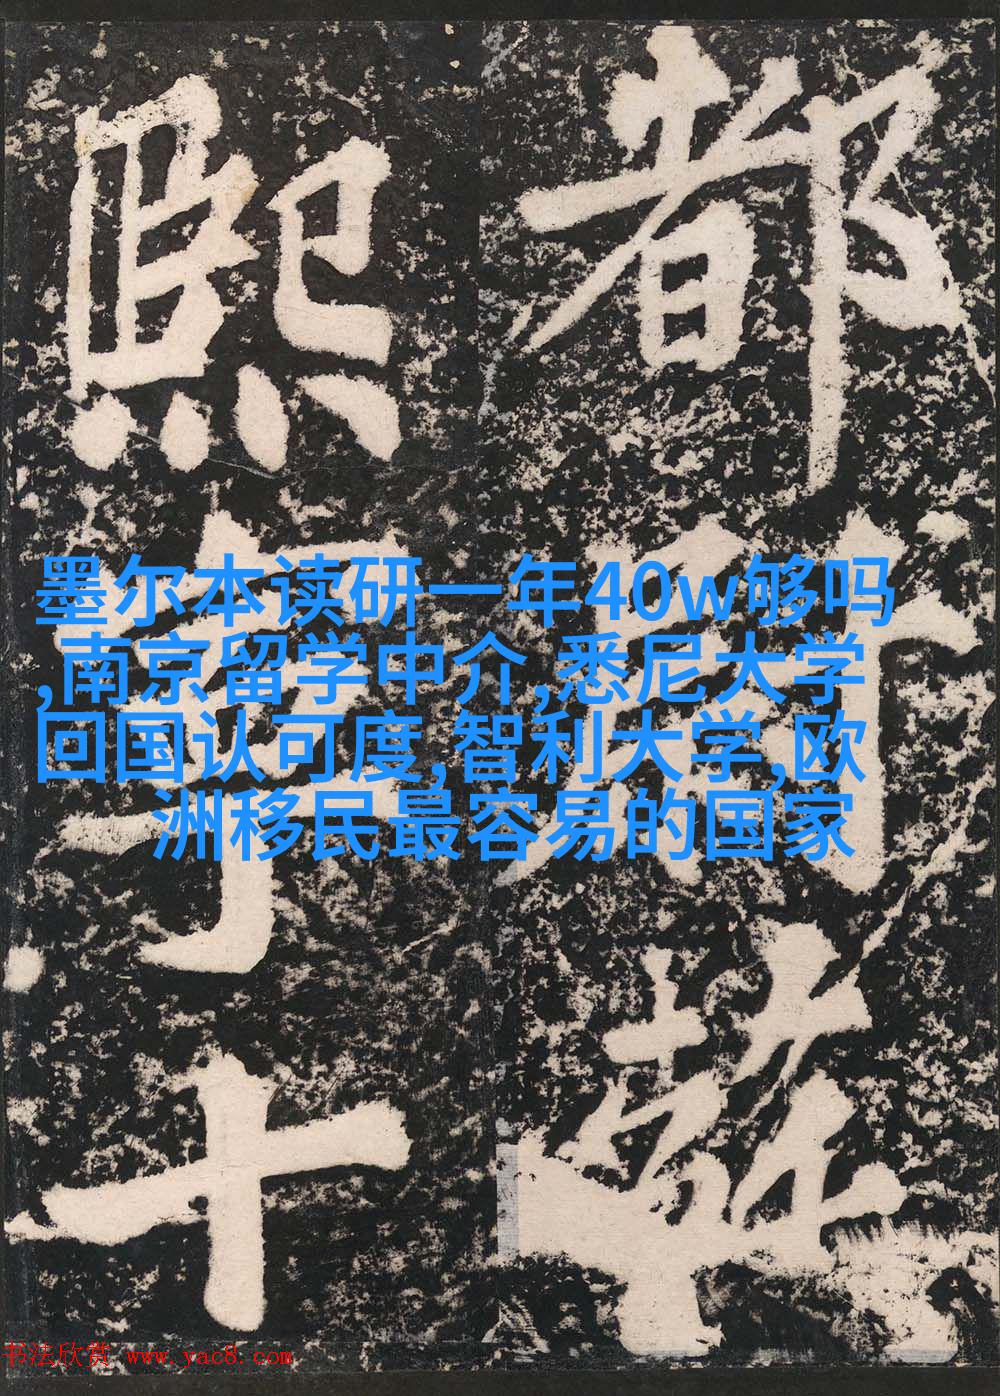 都
熙
十
墨尔本读研一年40w够吗
,南京留学中介,悉尼大学
回国认可度,智利大学,欧
洲移民最容易的国家
书法欣赏 www.yac8.com